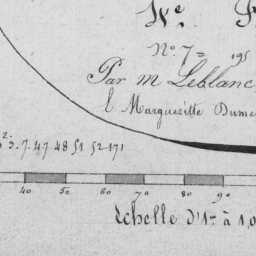 N° 7=
Par m Leblanc
Marguerite Dume
2.
3. 7. 47 48 51 52 171
40 50 60 70 80 90
Echelle d'1 à 1,0